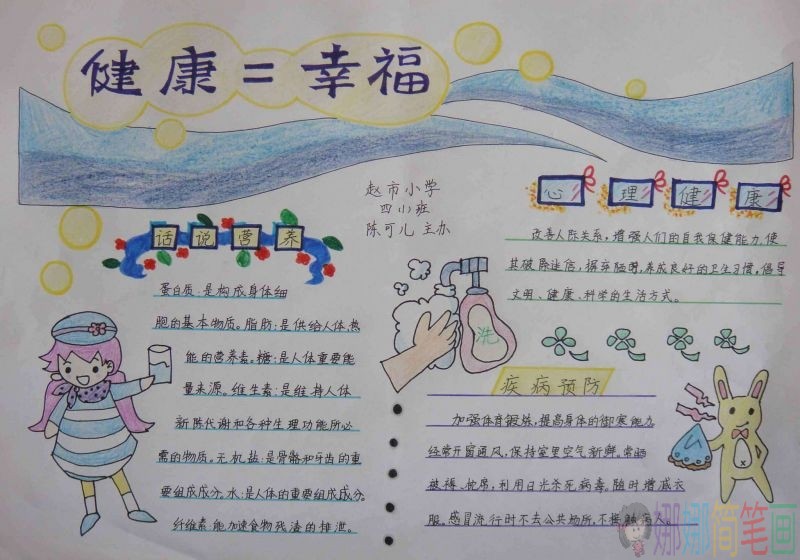 健康=幸福
赵市小学
四小班
陈可儿 主办
话说营养
蛋白质:是构成身体细
胞的基本物质。脂肪:是供给人体热
能的营养素。糖:是人体重要能
量来源。维生素:是维持人体
新陈代谢和各种生理功能所必
需的物质。无机盐:是骨骼和牙齿的重
要组成成分。水:是人体的重要组成成分。
纤维素能加速食物残渣的排泄。
心理健康
改善人际关系,增强人们的自我保健能力,使
其破除迷信,摒弃陋习,养成良好的卫生习惯,倡导
文明、健康、科学的生活方式。
洗
疾病预防
加强体育锻炼,提高身体的御寒能力。
经常开窗通风,保持室里空气新鲜。常晒
被褥、枕席,利用日光杀死病毒。随时增减衣
服。感冒流行时不去公共场所,不接触病人。
娜娜简笔画